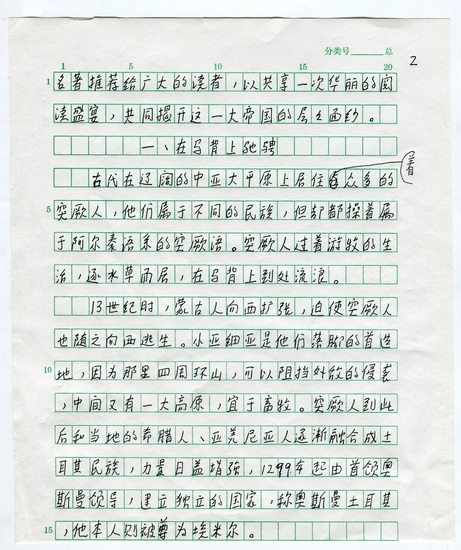 分类号______总
2
1 5 10 15 20
1 名著推荐给广大的读者，以共享一次华丽的阅
读盛宴，共同揭开这一大帝国的层层面纱。
一、在马背上驰骋
着
古代在辽阔的中亚大平原上居住众多的
5 突厥人，他们属于不同的民族，但却都操着属
于阿尔泰语系的突厥语。突厥人过着游牧的生
活，逐水草而居，在马背上到处流浪。
13世纪时，蒙古人向西扩张，迫使突厥人
也随之向西逃生。小亚细亚是他们落脚的首选
10 地，因为那里四周环山，可以阻挡外敌的侵袭
，中间又有一大高原，宜于畜牧。突厥人到此
后和当地的希腊人、亚美尼亚人逐渐融合成土
耳其民族，力量日益增强，1299年起由首领奥
斯曼领导，建立独立的国家，称奥斯曼土耳其
15 ，他本人则被尊为埃米尔。